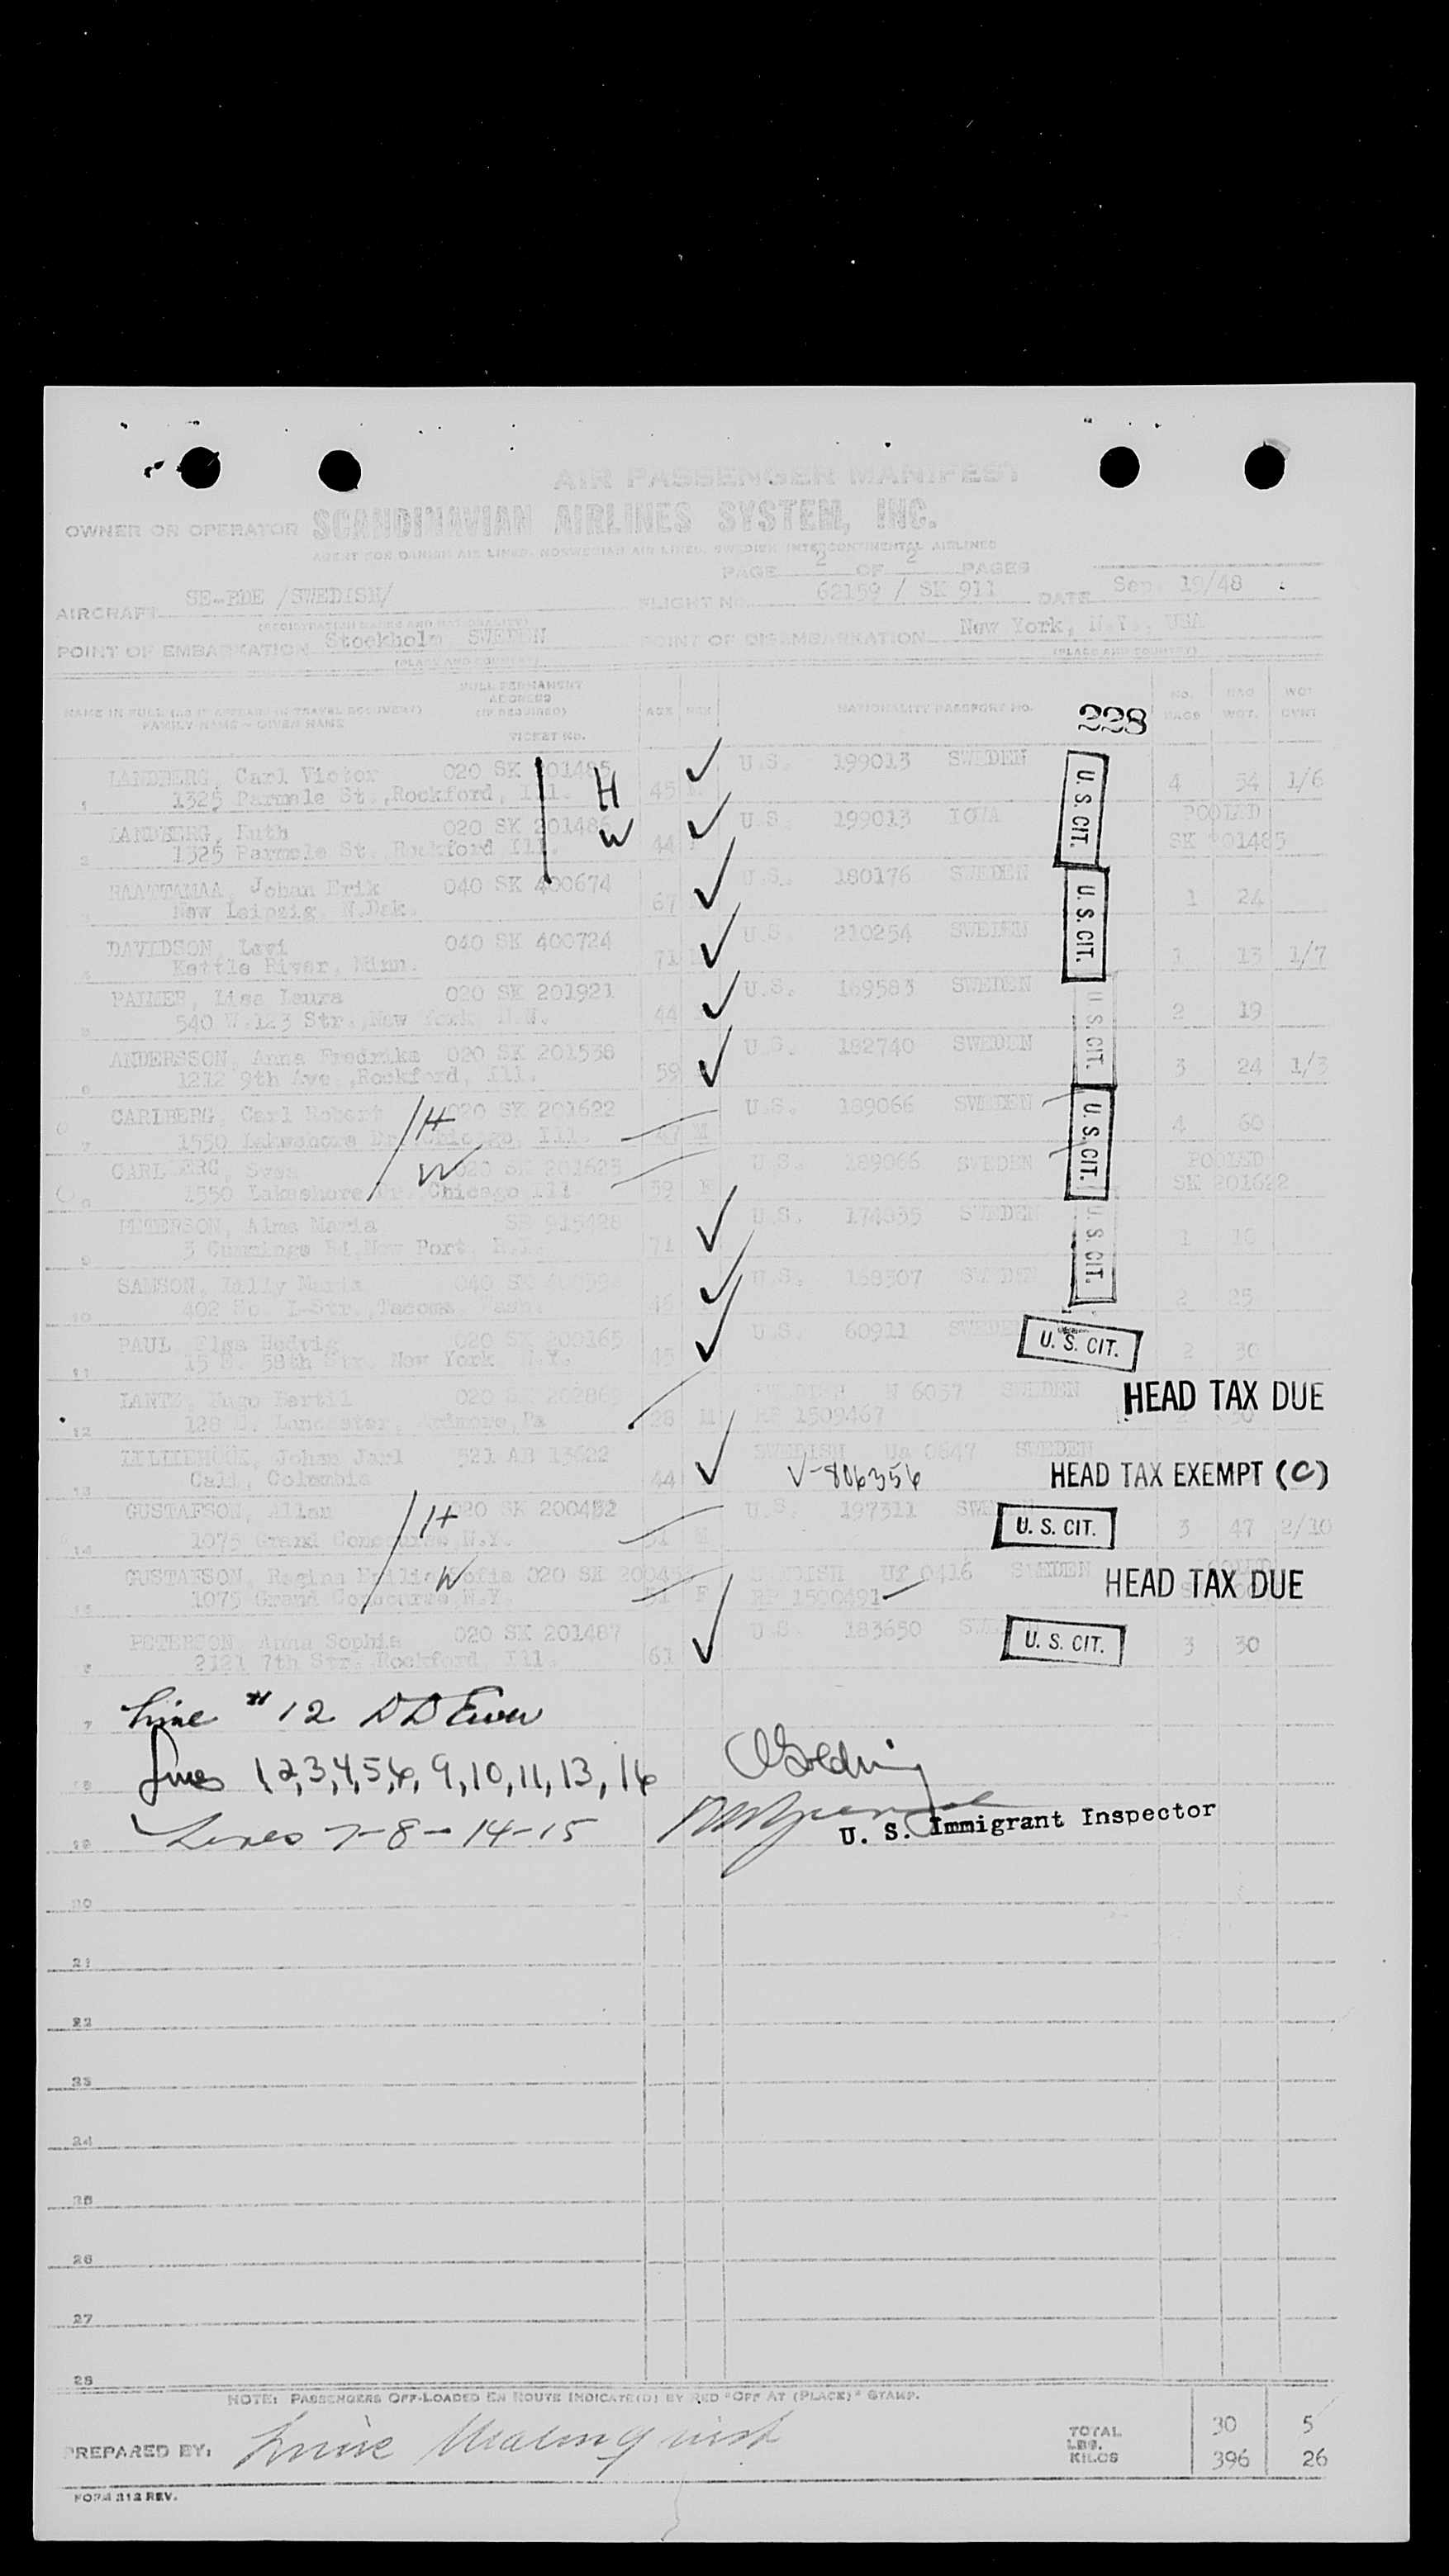 AIR PASSENGER MANIFEST
OWNER OR OPERATOR SCANDINAVIAN AIRLINES SYSTEM, INC.
AGENT FOR DANISH AIR LINES, NORWEGIAN AIR LINES, SWEDISH INTERCONTINENTAL AIRLINES
PAGE 2 OF 2 PAGES
AIRCRAFT SE-BDE /SWEDISH/ FLIGHT No. 62159 / SK 911 DATE Sep. 19/48
(REGISTRATION MARKS AND NATIONALITY)
POINT OF EMBARKATION Stockholm, SWEDEN POINT OF DISEMBARKATION New York, N.Y., USA
(PLACE AND COUNTRY) (PLACE AND COUNTRY)
NAME IN FULL (AS IT APPEARS IN TRAVEL DOCUMENT) FAMILY NAME - GIVEN NAME FULL PERMANENT ADDRESS (IF REQUIRED) TICKET No. AGE SEX NATIONALITY PASSPORT No. No. BAGS BAG WGT.
228
LANDBERG, Carl Victor 020 SK 201485 H U.S. 199013 SWEDEN U. S. CIT.
1 1325 Parmele St., Rockford, Ill. 45 4 54 1/6
LANDBERG, Ruth 020 SK 201486 W U.S. 199013 IOWA POOLED
2 1325 Parmele St. Rockford Ill. 44 SK 201485
RAATTAMAA, Johan Erik 040 SK 400674 U.S. 180176 SWEDEN U. S. CIT.
3 New Leipzig, N.Dak. 67 1 24
DAVIDSON, Levi 040 SK 400724 U.S. 210254 SWEDEN
4 Kettle River, Minn. 71 1 13 1/7
PALMER, Lisa Laura 020 SK 201921 U.S. 169583 SWEDEN U. S. CIT.
5 540 W.123 Str., New York, N.Y. 44 2 19
ANDERSSON, Anna Fredrika 020 SK 201538 U.S. 182740 SWEDEN
6 1212 9th Ave., Rockford, Ill. 59 3 24 1/3
CARLBERG, Carl Robert H 020 SK 201622 U.S. 189066 SWEDEN U. S. CIT.
7 1550 Lakeshore Dr. Chicago, Ill. 47 M 4 60
CARLBERG, Svea W 020 SK 201623 U.S. 189066 SWEDEN POOLED
8 1550 Lakeshore Dr. Chicago Ill 39 F SK 201622
PETERSON, Alma Maria 915428 U.S. 174035 SWEDEN U. S. CIT.
9 3 Cummings Rd, New Port, R.I. 71 1
SAMSON, Lilly Maria 040 SK U.S. 168507 SWEDEN
10 402 So. I-Str. Tacoma, Wash. 2 25
PAUL Elga Hedvig 020 SK 200165 U.S. 60911 SWEDEN U. S. CIT.
11 15 E. 58th Str. New York N.Y. 45 2 30
LANTZ, Hugo Bertil 020 SK 202869 SWEDISH N 6037 SWEDEN HEAD TAX DUE
12 128 E. Lancaster, Ardmore, Pa 28 M RP 1509467 2 30
LILLIEHOOK, Johan Jarl 521 AB 13622 SWEDISH Ua 0647 SWEDEN
13 Cali, Colombia 44 V-806356 HEAD TAX EXEMPT (C)
GUSTAFSON, Allan H 020 SK 200482 U.S. 197311 SWEDEN U. S. CIT.
14 1075 Grand Concourse, N.Y. M 3 47 2/10
GUSTAFSON, Regina Emilia Sofia W 020 SK SWEDISH Uf 0416 SWEDEN HEAD TAX DUE
15 1075 Grand Concourse, N.Y. F RP 1500491
PETERSON, Anna Sophia 020 SK 201487 U.S. 183650 SWEDEN U. S. CIT.
6 2121 7th Str. Rockford, Ill. 61 3 30
Line # 12
7
Lines 1,2,3,4,5,6, 9,10,11,13, 16 Golding
18
Lines 7-8-14-15
U. S. Immigrant Inspector
19
20
21
22
23
24
25
26
27
28
NOTE: PASSENGERS OFF-LOADED EN ROUTE INDICATE(D) BY RED "OFF AT (PLACE)" STAMP.
PREPARED BY: Malmquist
TOTAL 30 5
LBS.
KILOS 396 26
FORM 212 REV.